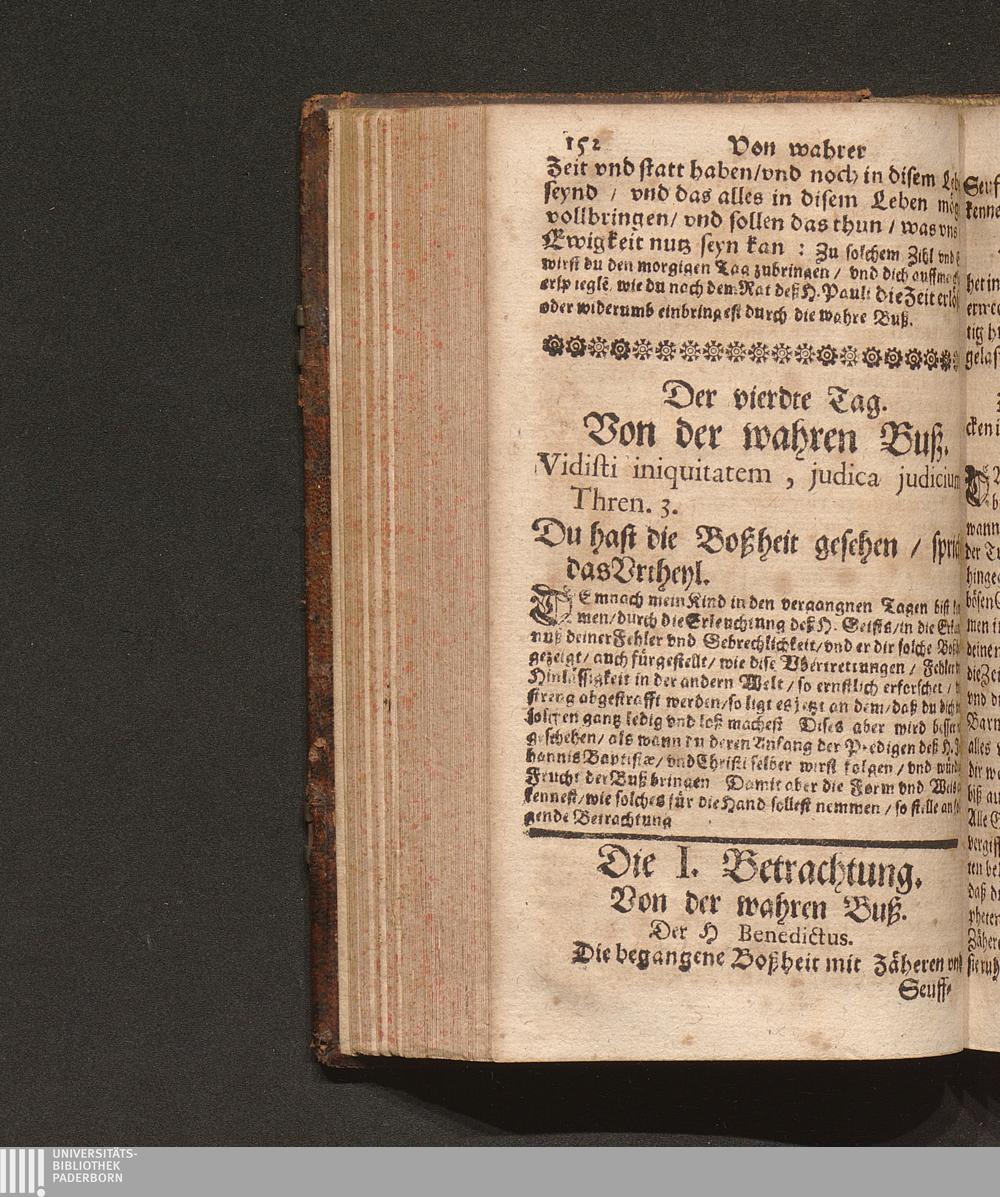 152 Von wahrer
Zeit vnd statt haben/vnd noch in disem
seynd / vnd das alles in disem Leben
vollbringen/ vnd sollen das thun / was vns
Ewigkeit nutz seyn kan : Zu solchem Zihl vnd
wirst du den morgigen Tag zubringen / vnd dich
wie du nach dem Rat deß H. Pauli die Zeit
oder widerumb einbringest durch die wahre Buß.
Der vierdte Tag.
Von der wahren Buß.
Vidisti iniquitatem , judica judicium
Thren. 3.
Du hast die Boßheit gesehen /
das Vrtheyl.
DEmnach mein Kind in den vergangnen Tagen bist
men/durch die Erleuchtung deß H. Geists/in die
nuß deiner Fehler vnd Gebrechlichkeit/vnd er dir solche
gezeigt/ auch fürgestellt/ wie dise Vbertrettungen /
Hinlässigkeit in der andern Welt/ so ernstlich erforschet /
streng abgestrafft werden/so ligt es jetzt an dem/daß du dich
solchen gantz ledig vnd loß machest Dises aber wird
geschehen/ als wann du deren Anfang der Predigen deß H.
hannis Baptistæ/ vnd Christi selber wirst folgen / vnd
Frucht der Buß bringen Damit aber die Form vnd
kennest/wie solches für die Hand sollest nemmen / so stelle an
gende Betrachtung
Die I. Betrachtung.
Von der wahren Buß.
Der H Benedictus.
Die begangene Boßheit mit Zäheren
Seuff-
Seuf
kenne
het in
tig
cken
wann
der
men
deiner
vnd
alles
biß
Alle
daß
UNIVERSITÄTS-
BIBLIOTHEK
PADERBORN